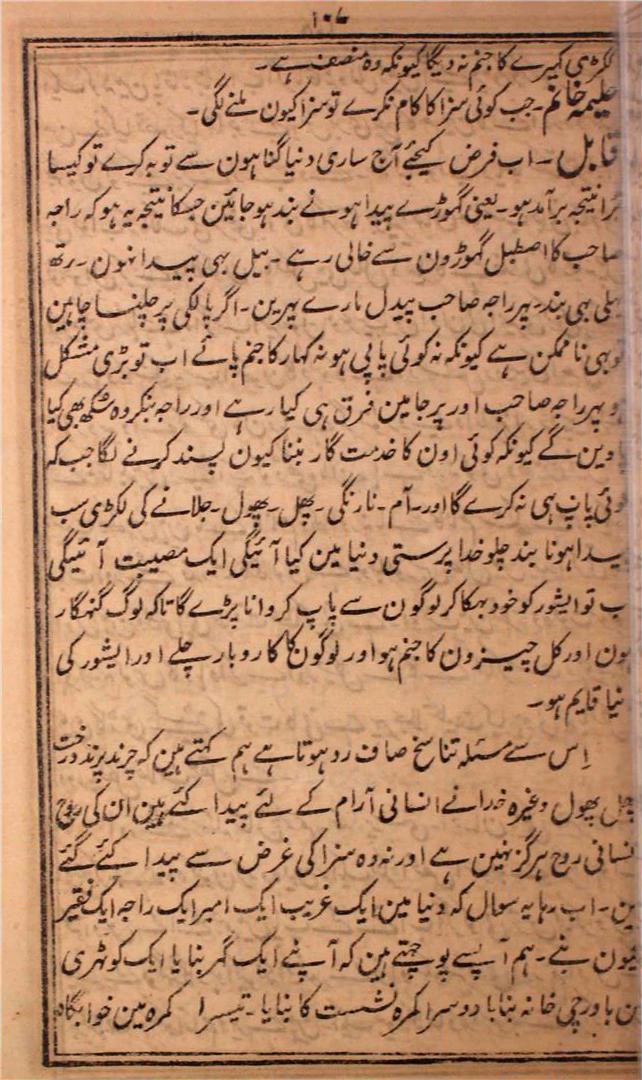 ۱۰۷
لکڑی کیرے کا جنم نہ دیگا کیونکہ وہ منصف ہے۔
حلیمہ خانم۔ جب کوئی سزا کا کام نکرے تو سزا کیون ملنے لگی۔
قابل۔ اب فرض کیجئے آج ساری دنیا گناہون سے توبہ کرے تو کیسا
برا نتیجہ برآمد ہو۔ یعنی گہوڑے پیدا ہونے بند ہو جائین جسکا نتیجہ یہ ہو کہ راجہ
صاحب کا اصطبل گہوڑون سے خالی رہے۔ بیل بہی پیدا نہون۔ رتھ
بہلی بہی بند۔ پر راجہ صاحب پیدل مارے پہرین۔ اگر پالکی پر چلنا چاہین
توبہی ناممکن ہے کیونکہ نہ کوئی پاپی ہو نہ کہار کا جنم پائے اب تو بڑی مشکل
ہو پہر راجہ صاحب اور پرجا مین فرق ہی کیا رہے اور راجہ بنکر وہ سکھ بھی کیا
پاوین گے کیونکہ کوئی اون کا خدمت گار بننا کیون پسند کرنے لگا جب کہ
کوئی پاپ ہی نہ کرے گا اور۔ آم۔ نارنگی۔ پھل۔ پھول۔ جلانے کی لکڑی سب
پیدا ہونا بند چلو خدا پرستی دنیا مین کیا آئیگی ایک مصیبت آئیگی
تب تو ایشور کو خود بہکا کر لوگون سے پاپ کروانا پڑے گا تاکہ لوگ گنہگار
ہون اور کل چیزون کا جنم ہو اور لوگون کا کاروبار چلے اور ایشور کی
دنیا قایم ہو۔
اِس سے مسئلہ تناسخ صاف رد ہوتا ہے ہم کہتے ہین کہ چرند پرند درخت
پھل پھول وغیرہ خدا نے انسانی آرام کے لئے پیدا کئے ہین ان کی روح
انسانی روح ہرگز نہین ہے اور نہ وہ سزا کی غرض سے پیدا کئے گئے
ہین۔ اب رہا یہ سوال کہ دنیا مین ایک غریب ایک امیر ایک راجہ ایک فقیر
کیون بنے۔ ہم آپسے پوچہتے ہین کہ آپنے ایک گہر بنایا ایک کوٹہری
مین باورچی خانہ بنایا دوسرا کمرہ نشست کا بنایا۔ تیسرا کمرہ مین خوابگاہ